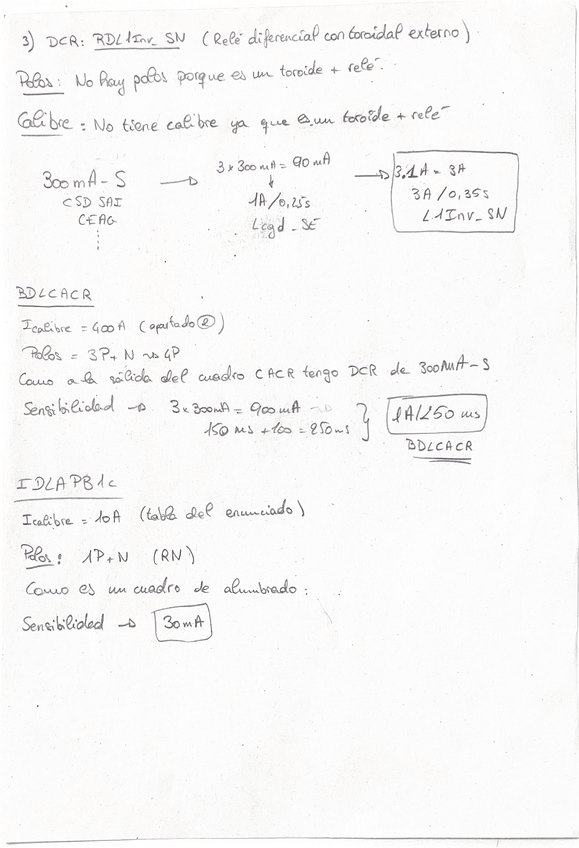 3) DCR: RDL1Inv_SN (Relé diferencial con toroidal externo)
Polos: No hay polos porque es un toroide + relé.
Calibre = No tiene calibre ya que es un toroide + relé
300mA-S → 3 x 300mA = 90mA → 3.1A = 3A
CSD SAI ↓ 3A/0,35s
CEAG 1A/0,25s L1Inv_SN
Lcgd_SE
BDLCACR
Icalibre = 400A (apartado 2)
Polos = 3P+N → 4P
Como a la sálida del cuadro CACR tengo DCR de 300mA-S
Sensibilidad → 3 x 300mA = 900mA
150 ms + 100 = 250ms } 1A/250 ms
BDLCACR
IDLAPB1c
Icalibre = 10A (tabla del enunciado)
Polos: 1P+N (RN)
Como es un cuadro de alumbrado:
Sensibilidad → 30mA